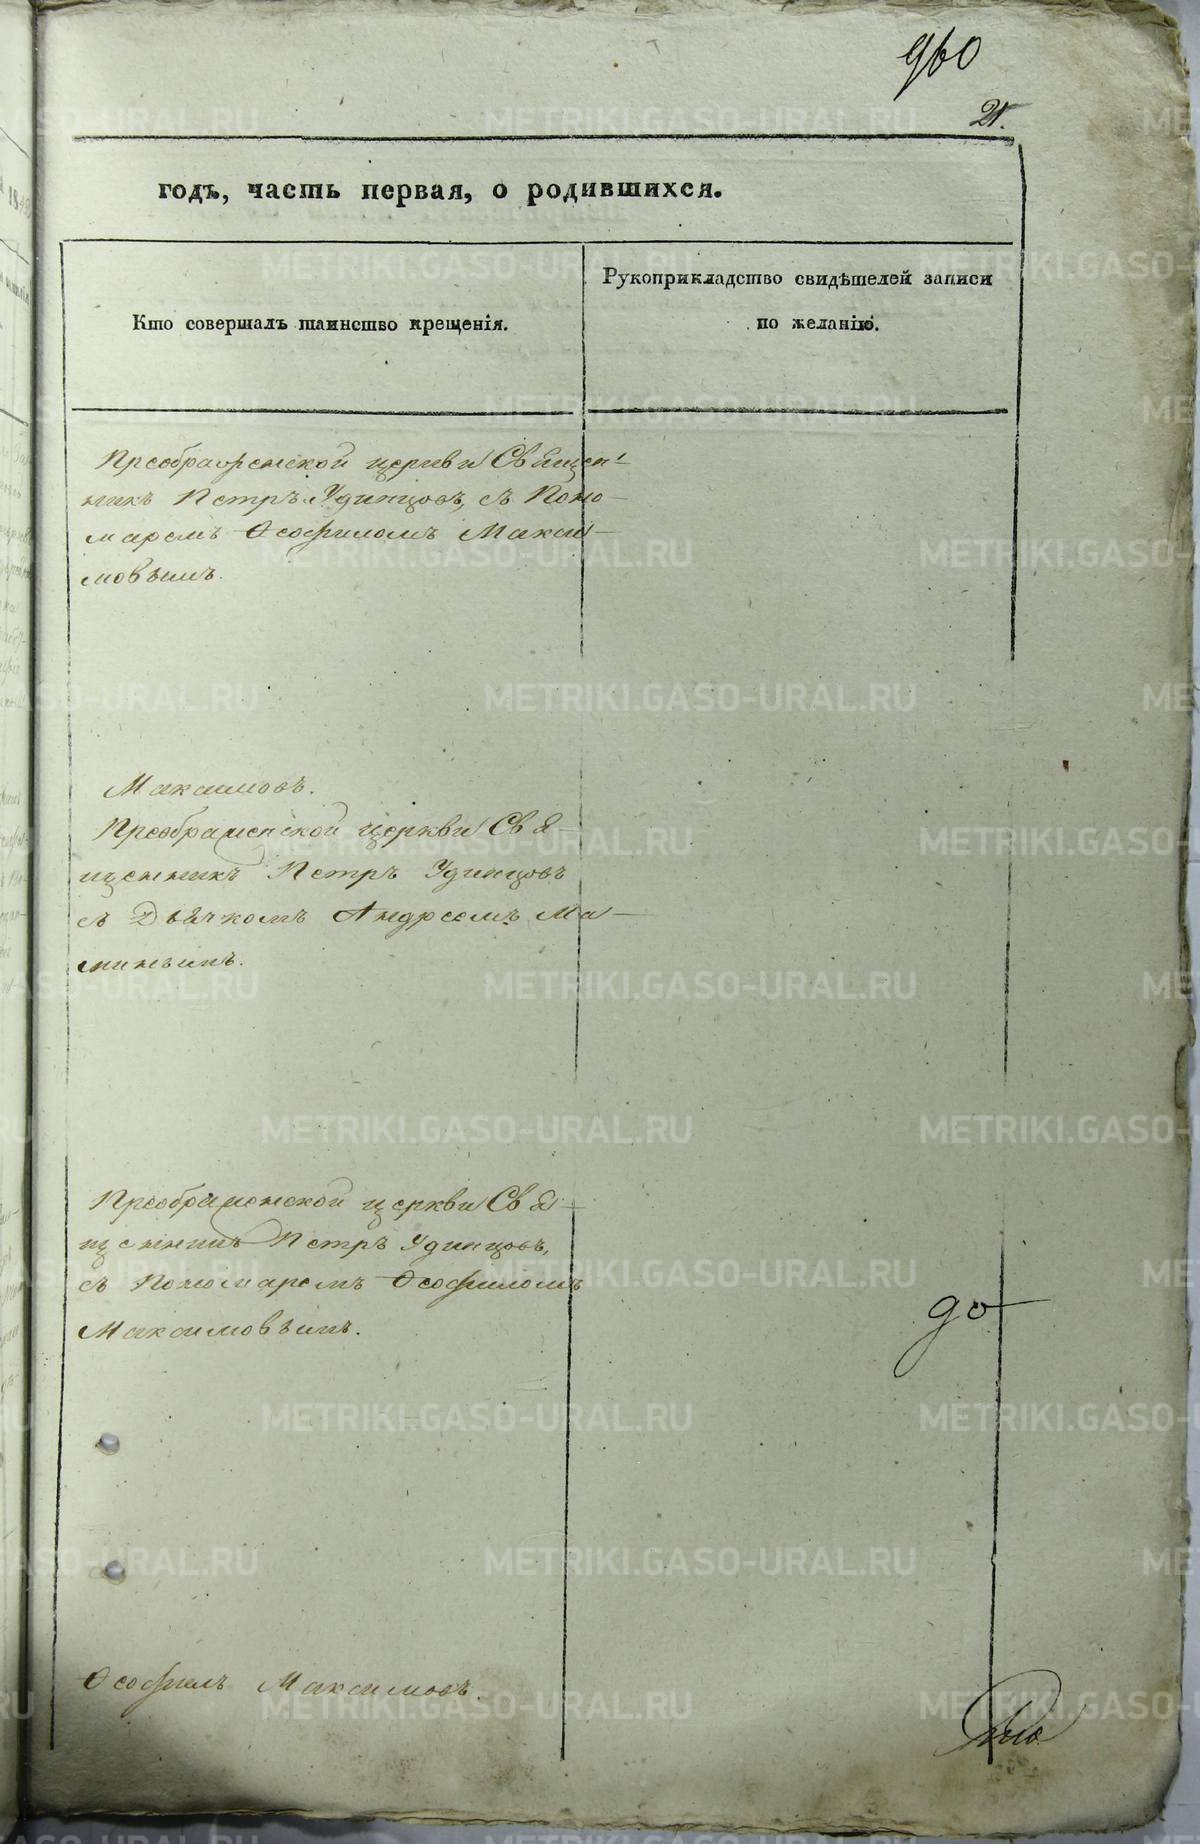 960
21.
годъ, часть первая, о родившихся.
Кто совершалъ таинство крещенія.
Рукоприкладство свидѣтелей записи
по желанію.
Преображенской церкви Священ-
никъ Петръ Удинцовъ, съ Поно-
маремъ Ѳеофиломъ Макси-
мовымъ.
Максимовъ.
Преображенской церкви Свя-
щенникъ Петръ Удинцовъ
съ Дьячкомъ Андреемъ Ма-
минымъ.
Преображенской церкви Свя-
щенникъ Петръ Удинцовъ,
съ Пономаремъ Ѳеофиломъ
Максимовымъ.
до
Ѳеофилъ Максимовъ.
METRIKI.GASO-URAL.RU